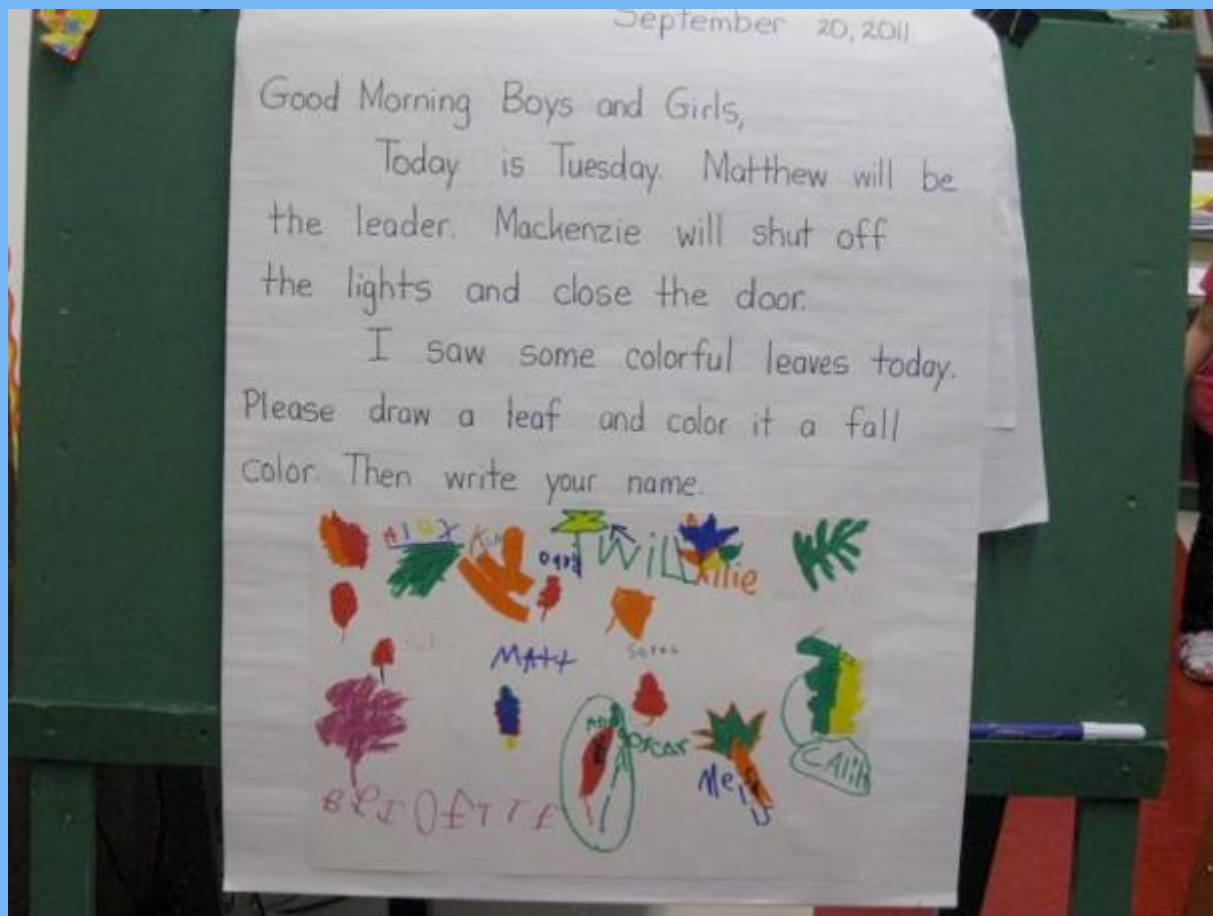 September 20, 2011
Good Morning Boys and Girls,
Today is Tuesday. Matthew will be
the leader. Mackenzie will shut off
the lights and close the door.
I saw some colorful leaves today.
Please draw a leaf and color it a fall
color. Then write your name.
Alex
Will
MAtt
Sarah
Oscar